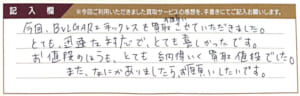 記入欄 ※今回ご利用いただきました買取サービスの感想を、手書きにてご記入お願いします。
今回、BVLGARIネックレスを買取お願いさせていただきました。
とても、迅速な対応で、とても喜しかったです。
お値段のほうも、とても納得いく買取価格でした。
また、なにかありましたら、お願いしたいです。